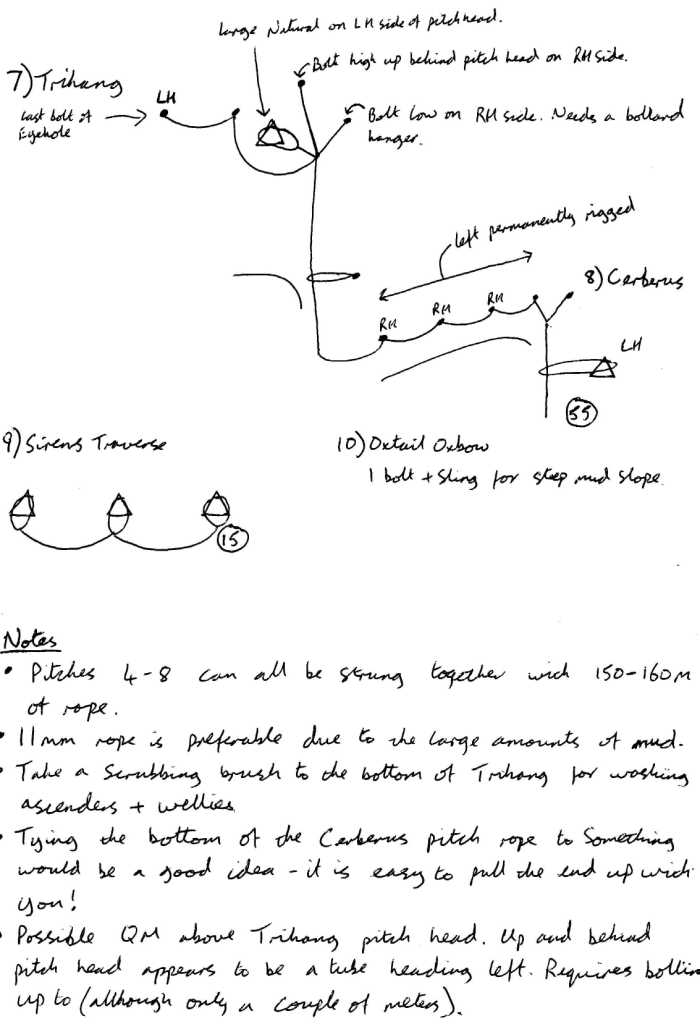 Large Natural on LH side of pitchhead.
Bolt high up behind pitch head on RH side.
7) Trihang
LH
Last bolt of
Eyehole
Bolt low on RH side. Needs a bollard
hanger.
left permanently rigged
8) Cerberus
RH
RH
RH
LH
55
9) Sirens Traverse
10) Oxtail Oxbow
1 bolt + sling for steep mud slope.
15
Notes
• Pitches 4-8 can all be strung together with 150-160m
of rope.
• 11mm rope is preferable due to the large amounts of mud.
• Take a scrubbing brush to the bottom of Trihang for washing
ascenders + wellies
• Tying the bottom of the Cerberus pitch rope to something
would be a good idea - it is easy to pull the end up with
you!
• Possible QM above Trihang pitch head. Up and behind
pitch head appears to be a tube heading left. Requires boltin
up to (although only a couple of meters).